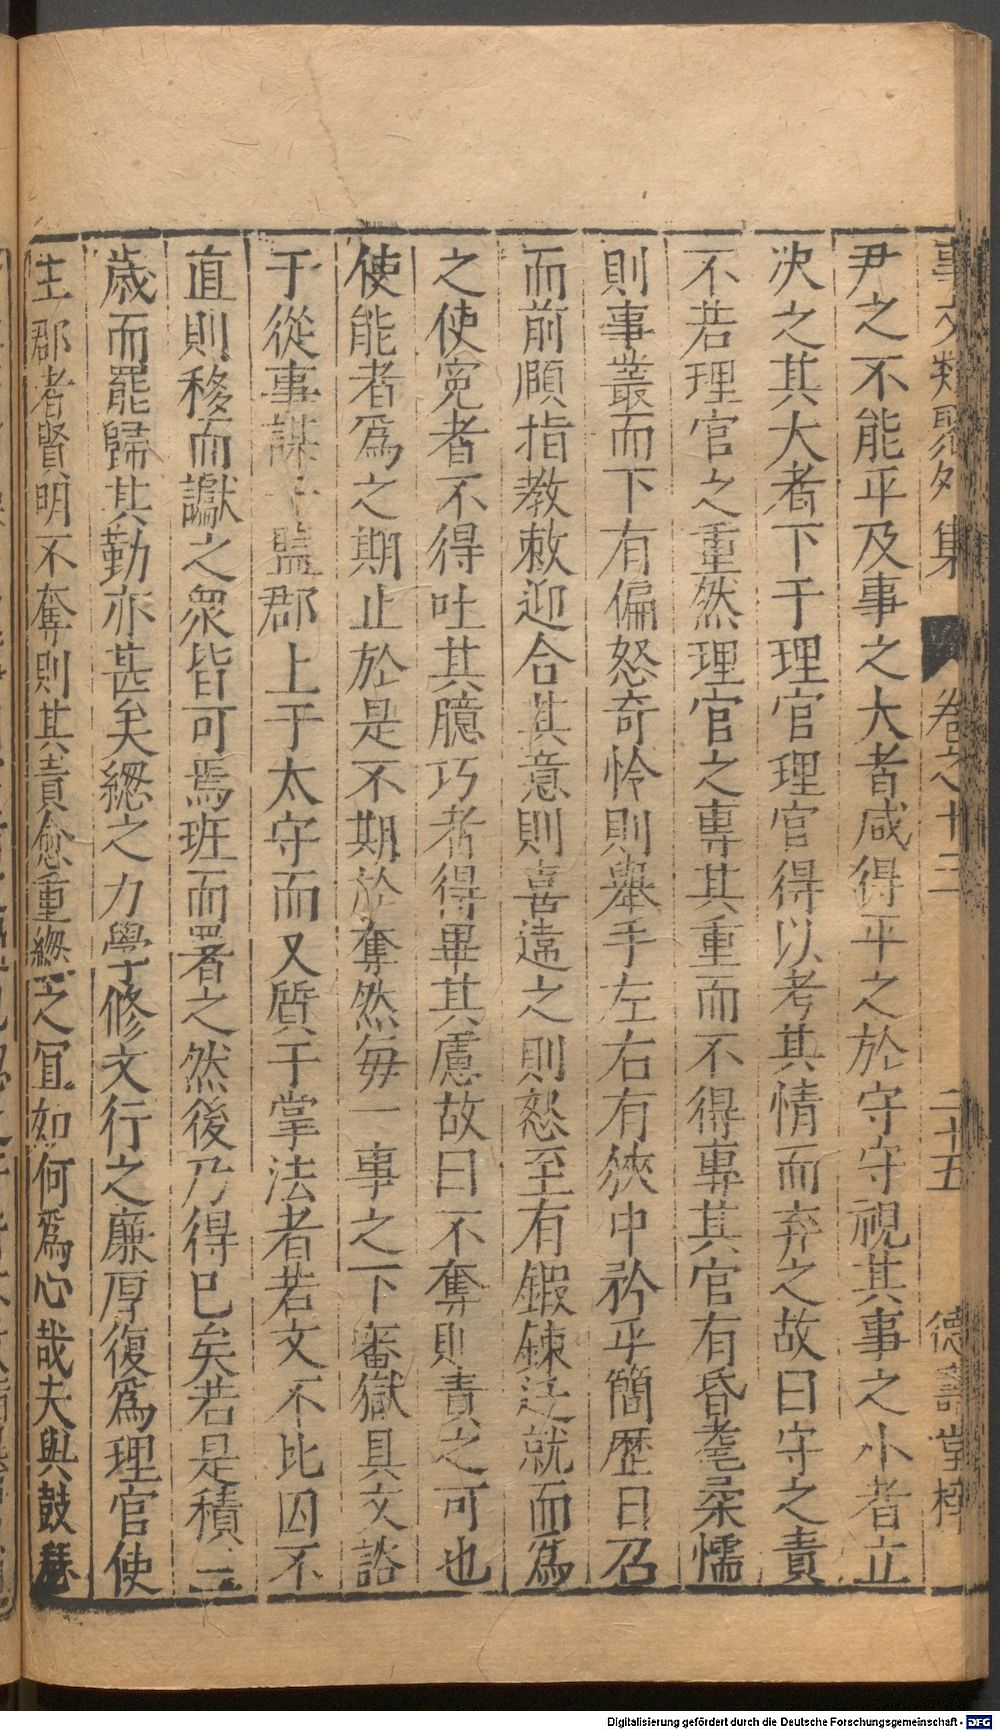 事文類聚外集 卷之十三 二十五 德壽堂梓
尹之不能平及事之大者咸得平之於守守視其事之小者立
决之其大者下于理官理官得以考其情而弃之故曰守之責
不若理官之重然理官之專其重而不得專其官有昏耄柔懦
則事叢而下有偏怒奇怜則舉手左右有狹中矜乎簡歷日召
而前頤指教敕迎合其意則喜違之則怒至有鍛鍊迁就而爲
之使寃者不得吐其臆巧者得畢其慮故曰不奪則責之可也
使能者爲之期止於是不期於奪然毎一事之下審獄具文諮
于從事謀于監郡上于太守而又質于掌法者若文不比囚不
直則移而讞之衆皆可焉班而署之然後乃得巳矣若是積三
歳而罷歸其勤亦甚矣緫之力學修文行之廉厚復爲理官使
主郡者賢明不奪則其責愈重緫之宜如何爲心哉夫與鼓瑟
Digitalisierung gefördert durch die Deutsche Forschungsgemeinschaft - DFG